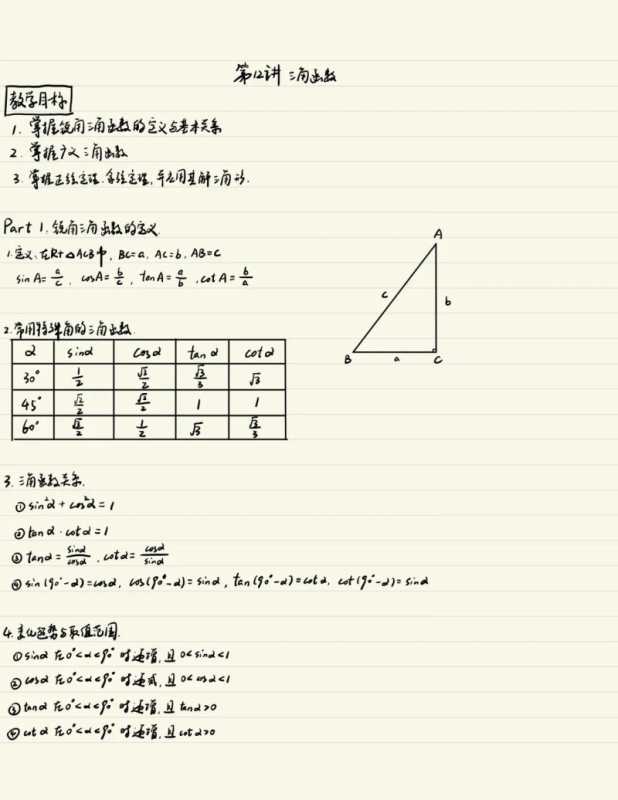 第12讲 三角函数
教学目标
1. 掌握锐角三角函数的定义与基本关系
2. 掌握广义三角函数
3. 掌握正弦定理、余弦定理,并应用其解三角形.
Part 1. 锐角三角函数的定义
1. 定义:在Rt△ACB中, BC=a, AC=b, AB=c
sin A = a/c , cos A = b/c , tan A = a/b , cot A = b/a
A
c
b
B
a
C
2. 常用特殊角的三角函数
α sinα cosα tan α cot α
30° 1/2 √3/2 √3/3 √3
45° √2/2 √2/2 1 1
60° √3/2 1/2 √3 √3/3
3. 三角函数关系.
① sin²α + cos²α = 1
② tan α · cot α = 1
③ tan α = sinα/cosα , cot α = cosα/sinα
④ sin (90°-α) = cosα, cos (90°-α) = sinα, tan (90°-α) = cot α, cot (90°-α) = sinα
4. 变化趋势与取值范围.
① sinα 在0°<α<90° 时递增, 且 0<sinα<1
② cosα 在0°<α<90° 时递减, 且 0<cosα<1
③ tanα 在0°<α<90° 时递增, 且 tanα>0
④ cot α 在0°<α<90° 时递增, 且 cot α>0